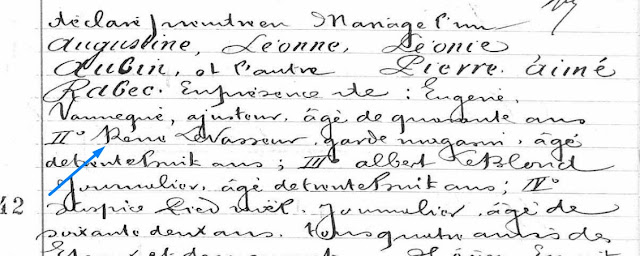 déclaré prendre en Mariage l'un
Augustine, Léonne, Léonie
Aubin, et l'autre Pierre. aimé
Rabec. En présence de : Eugène.
Vannequé, ajusteur, âgé de quarante ans
II° Réné LeVasseur, garde magasin, âgé
de trente huit ans ; III° albert LeBlond
Journalier, âgé de trente huit ans ; IV°
42
Journalier, âgé de
soixante deux ans. tous quatre amis des